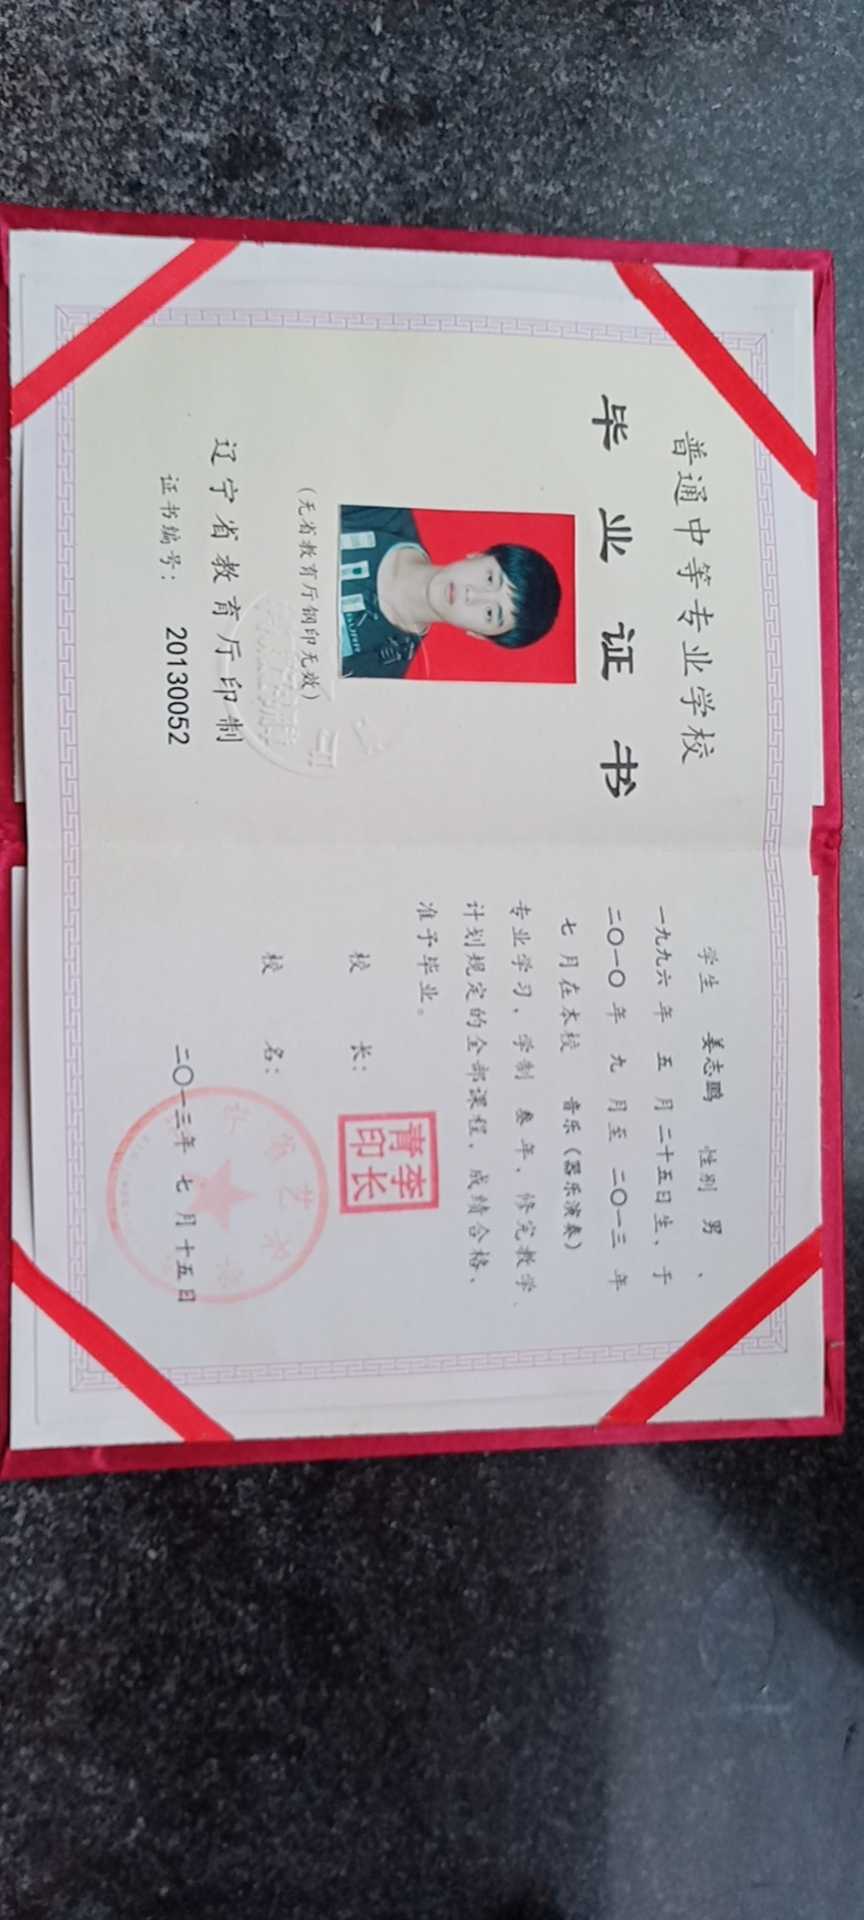 普通中等专业学校
毕业证书
(无省教育厅钢印无效)
辽宁省教育厅印制
证书编号: 20130052
学生 姜志鹏 性别 男 、
一九九六 年 五 月 二十五日生、于
二〇一〇 年 九 月至 二〇一三 年
七 月在本校 音乐(器乐演奏)
专业学习,学制 叁 年,修完教学
计划规定的全部课程,成绩合格,
准予毕业。
校 长:
李长青印
校 名:
二〇一三年 七 月十五日